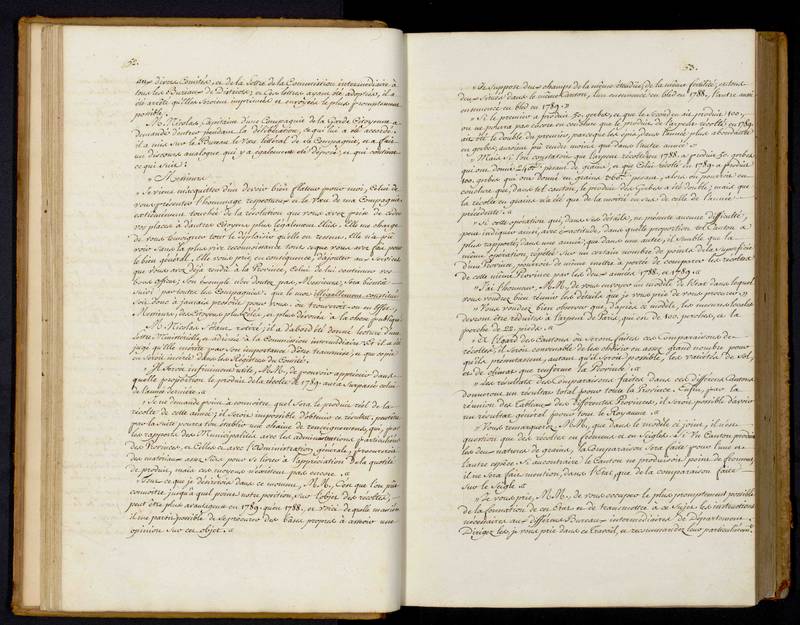 52.
aux divers Comités, et de la Lettre de la Commission intermédiaire à
tous les Bureaux de Districts; et Ces lettres ayant été adoptées, il a
été arrêté qu'elles seroient imprimées et envoyées le plus promptement
possible.
M. Nicolas, Capitaine d'une Compagnie de la Garde Citoyenne a
demandé d'entrer pendant la délibération, ce qui lui a été accordé.
il a mis sur le Bureau le Vœu littéral de sa Compagnie, et a fait
un discours analogue qui y a également été déposé, et qui contient
ce qui suit:
« Messieurs
« Je viens m'acquitter d'un devoir bien flatteur pour moi, Celui de
vous présenter l'hommage respectueux et le Vœu de ma Compagnie,
extrêmement touchée de la résolution que vous avez prise de céder
vos places à d'autres Citoyens plus légalement élus. Elle me charge
de vous témoigner tout le déplaisir qu'elle en ressent. Elle n'a pu
voir sans la plus vive reconnoissance tout ce que vous avez fait pour
le bien général. Elle vous prie, en conséquence, d'ajouter aux services
que vous avez déja rendu à la Province, Celui de lui continuer vos
bons offices; Son exemple, n'en doutez pas, Messieurs, Sera bientôt
suivi par toutes les Compagnies: que le mot illégalement constitué
soit donc à jamais proscrit pour vous. où trouveroit-on en effet,
Messieurs, des Citoyens plus zélés, et plus dévoués à la chose publique.
M. Nicolas s'étant retiré, il a d'abord été donné lecture d'une
lettre Ministérielle, adressée à la Commission intermédiaire. Et il a été
jugé qu'elle mérite par son importance d'être transcrite, et que copie
en seroit insérée dans les Registres du Comité.
« Il seroit infiniment utile, M.M., de pouvoir apprécier dans
quelle proportion le produit de la récolte de 1789. aura surpassé celui
de l'année dernière. »
« Je ne demande point à connoître quel sera le produit réel de la
récolte de cette année; il seroit impossible d'obtenir ce résultat. peut-être
par la suite pourra-t'on établir une chaîne de renseignements, qui, par
les rapports des Municipalités avec les administrations particulières
des Provinces, et Celles-ci avec l'administration générale, procureroit
des matériaux assez sûrs pour se livrer à l'appréciation de la quotité
de produit, mais ces moyens n'existent pas encore. »
Tout ce que je désirerois dans ce moment, M.M., C'est que l'on pût
connoître, jusqu'à quel point notre position, sur l'objet des récoltes,
peut être plus avantageuse en 1789. qu'en 1788. et voici de quelle manière
il me paroit possible de se procurer des bases propres à asseoir une
opinion sur cet objet. »
53.
« Je suppose deux champs de la même étendue, de la même fertilité, et tous
deux situés dans le même Canton, l'un ensemencé en bled en 1788. l'autre aussi
ensemencé en bled en 1789. »
« Si le premier a produit 50. gerbes, et que le second en ait produit 100.,
on ne pourra pas encore en conclure que le produit de la pleine récolte en 1789.
ait été le double du premier, parceque les épis d'une année plus abondante
en gerbes, auroient pu rendre moins que dans l'autre année. »
Mais si l'on constatoit que l'arpent récolté en 1788. a produit 50. gerbes
qui ont donné 240.tt pesant de grains, et que Celui récolté en 1789. a produit
100. gerbes qui ont donné en grains 360.tt pesant, alors on pourroit en
conclure que, dans tel canton, le produit des Gerbes a été double; mais que
la récolte en grains n'a été que de la moitié en sus de celle de l'année
précédente. »
« Si cette opération qui, dans ses détails, ne présente aucune difficulté,
peut indiquer ainsi, avec exactitude, dans quelle proportion tel Canton a
plus rapporté, dans une année, que dans une autre, il semble que la
même opération, répétée sur un certain nombre de points de la superficie
d'une Province, pourroit de même mettre à portée de comparer les récoltes
de cette même Province par les deux années 1788. et 1789. »
« J'ai l'honneur, M.M., de vous envoyer un modèle de l'Etat dans lequel
vous voudrez bien réunir les détails que je vous prie de vous procurer. »
« Vous voudrez bien observer que, d'après ce modèle, les mesures locales
devront être réduites à l'arpent de Paris, qui est de 100. perches, et la
perche de 22. pieds. »
« A l'égard des Cantons où seront faites ces Comparaisons de
récoltes, il seroit convenable de les choisir en assez grand nombre pour
qu'ils présentassent, autant qu'il seroit possible, les variétés de Sol,
et de climat que renferme la Province. »
« Les résultats des Comparaisons faites dans ces différens Cantons
donneront un résultat total pour toute la Province. Enfin, par la
réunion des Tableaux des différentes Provinces, il seroit possible d'avoir
un résultat général pour tout le Royaume. »
« Vous remarquerez, M.M., que dans le modèle ci joint, il n'est
question que des récoltes en froment et en Seigle. Si un Canton produit
les deux natures de grains, la Comparaison sera faite pour l'une et
l'autre espèce. Si au contraire le Canton ne produisoit point de froment,
il ne sera fait mention, dans l'Etat, que de la comparaison faite
sur le Seigle. »
« Je vous prie, M.M., de vous occuper le plus promptement possible
de la formation de cet Etat et de transmettre à ce sujet les instructions
nécessaires aux différens Bureaux intermédiaires de Département.
Dirigez les, je vous prie dans ce travail, et recommandez leur particulièremt.